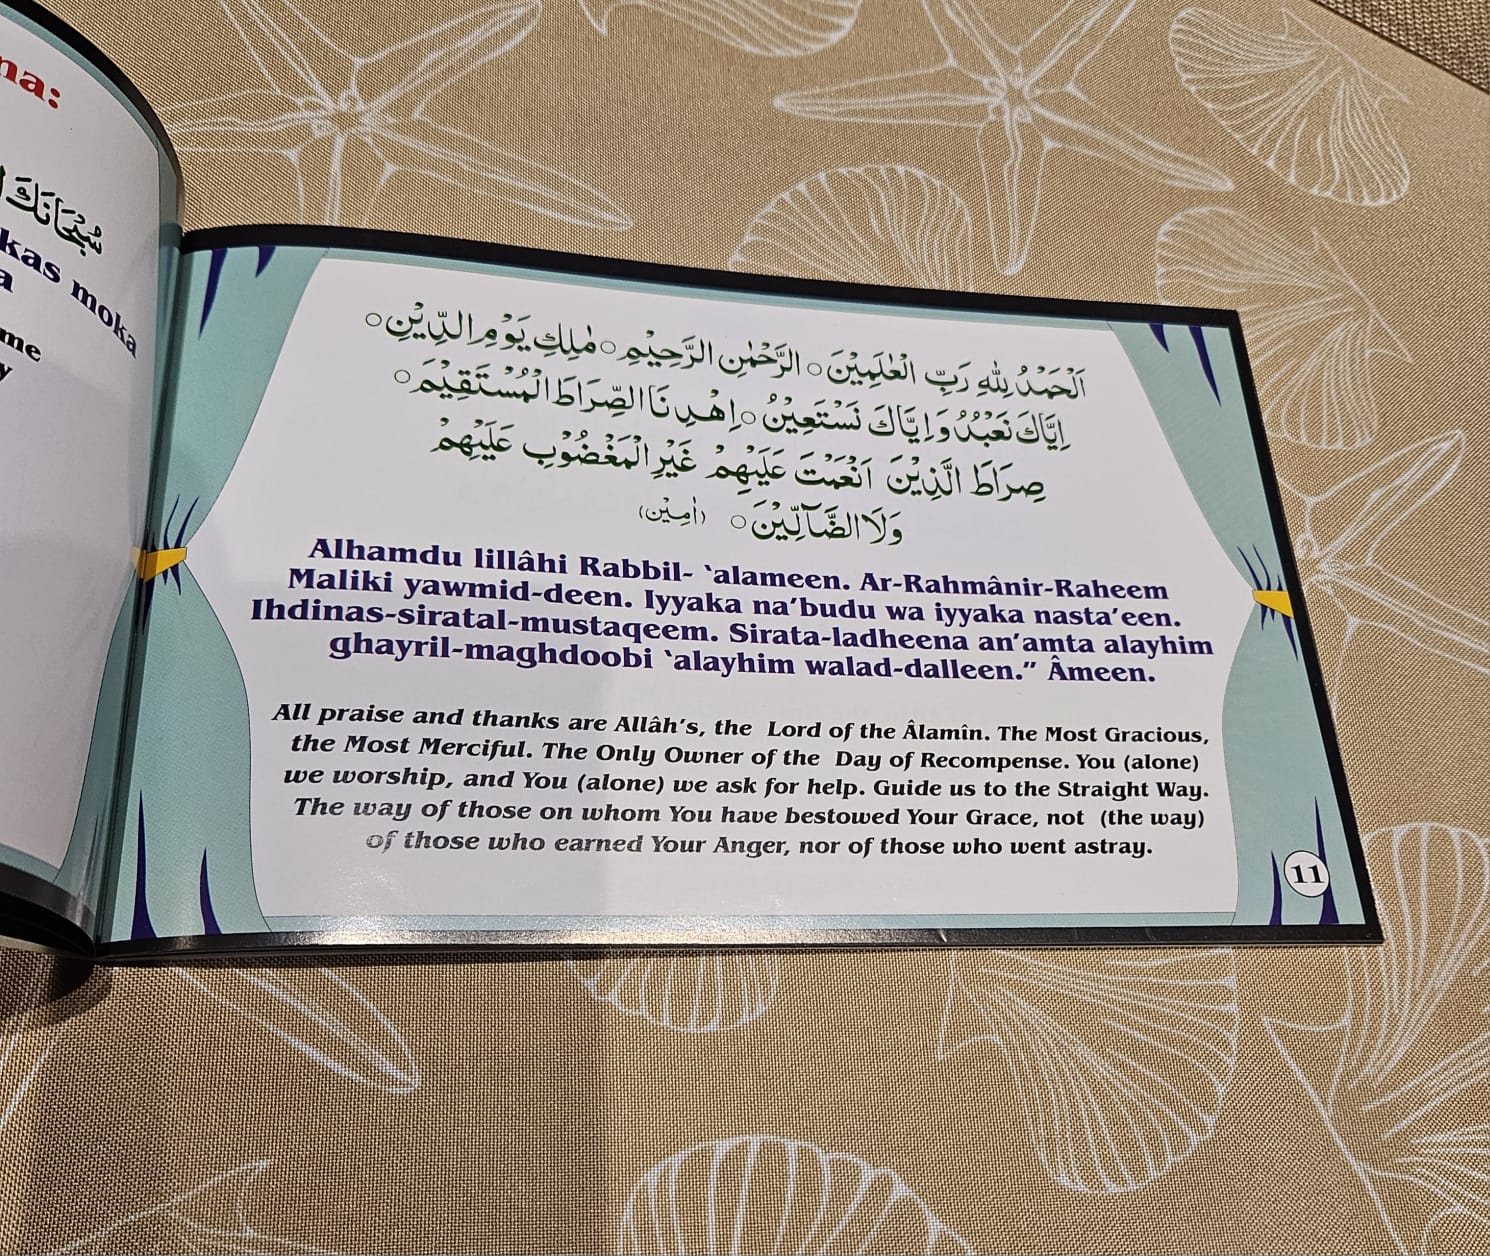 na:
سُبْحَانَكَ
kas moka
a
me
y
اَلْحَمْدُ لِلّٰهِ رَبِّ الْعٰلَمِيْنَ○ الرَّحْمٰنِ الرَّحِيْمِ○ مٰلِكِ يَوْمِ الدِّيْنِ○
اِيَّاكَ نَعْبُدُ وَ اِيَّاكَ نَسْتَعِيْنُ○ اِهْدِنَا الصِّرَاطَ الْمُسْتَقِيْمَ○
صِرَاطَ الَّذِيْنَ اَنْعَمْتَ عَلَيْهِمْ غَيْرِ الْمَغْضُوْبِ عَلَيْهِمْ
وَلَا الضَّآلِّيْنَ○ (اٰمِيْن)
Alhamdu lillâhi Rabbil- ‘alameen. Ar-Rahmânir-Raheem
Maliki yawmid-deen. Iyyaka na’budu wa iyyaka nasta’een.
Ihdinas-siratal-mustaqeem. Sirata-ladheena an’amta alayhim
ghayril-maghdoobi ‘alayhim walad-dalleen.” Âmeen.
All praise and thanks are Allâh’s, the Lord of the Âlamîn. The Most Gracious,
the Most Merciful. The Only Owner of the Day of Recompense. You (alone)
we worship, and You (alone) we ask for help. Guide us to the Straight Way.
The way of those on whom You have bestowed Your Grace, not (the way)
of those who earned Your Anger, nor of those who went astray.
11